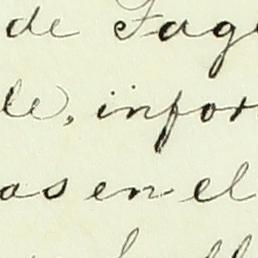 de Fag
le, infor
as en el